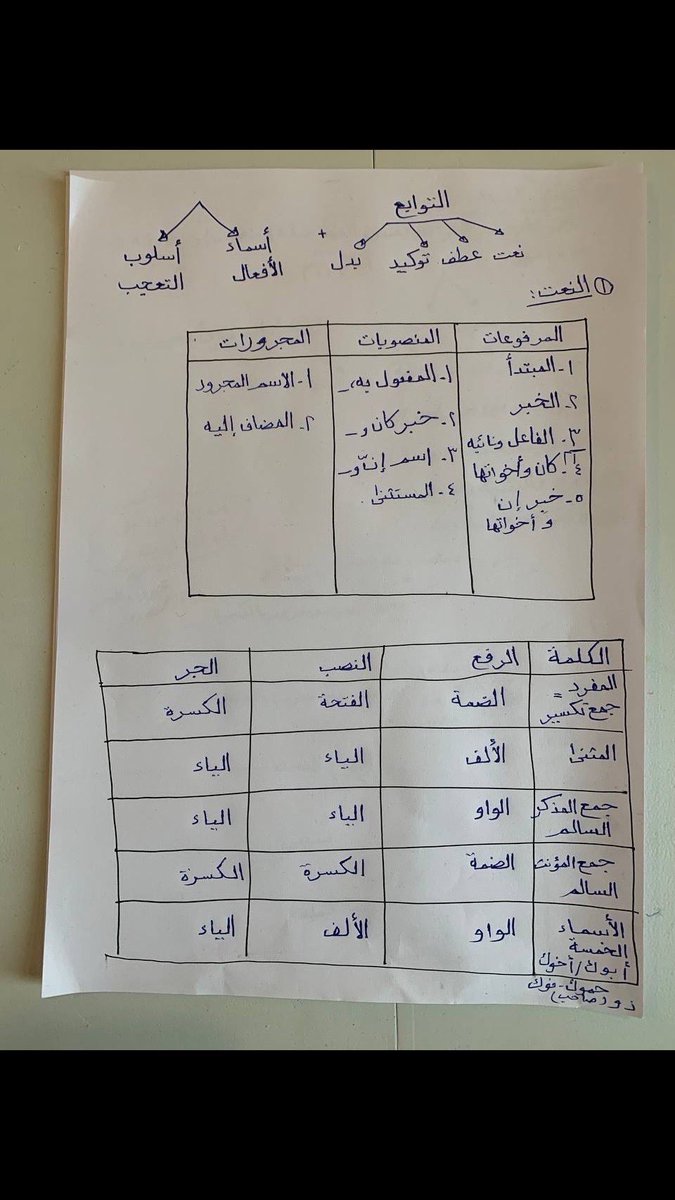 التوابع
نعت عطف توكيد بدل + أسماء الأفعال أسلوب التعجب
١ النعت:
المرفوعات المنصوبات المجرورات
١- المبتدأ ١- المفعول به، ١- الاسم المجرور
٢- الخبر ٢- خبر كان و ٢- المضاف إليه
٣- الفاعل ونائبه ٣- اسم إنّ و
٤- كان وأخواتها ٤- المستثنى
٥- خبر إن
وأخواتها
الكلمة الرفع النصب الجر
المفرد = جمع تكسير الضمة الفتحة الكسرة
المثنى الألف الياء الياء
جمع المذكر السالم الواو الياء الياء
جمع المؤنث السالم الضمة الكسرة الكسرة
الأسماء الخمسة الواو الألف الياء
أبوك / أخوك
حموك - فوك
ذو (صاحب)